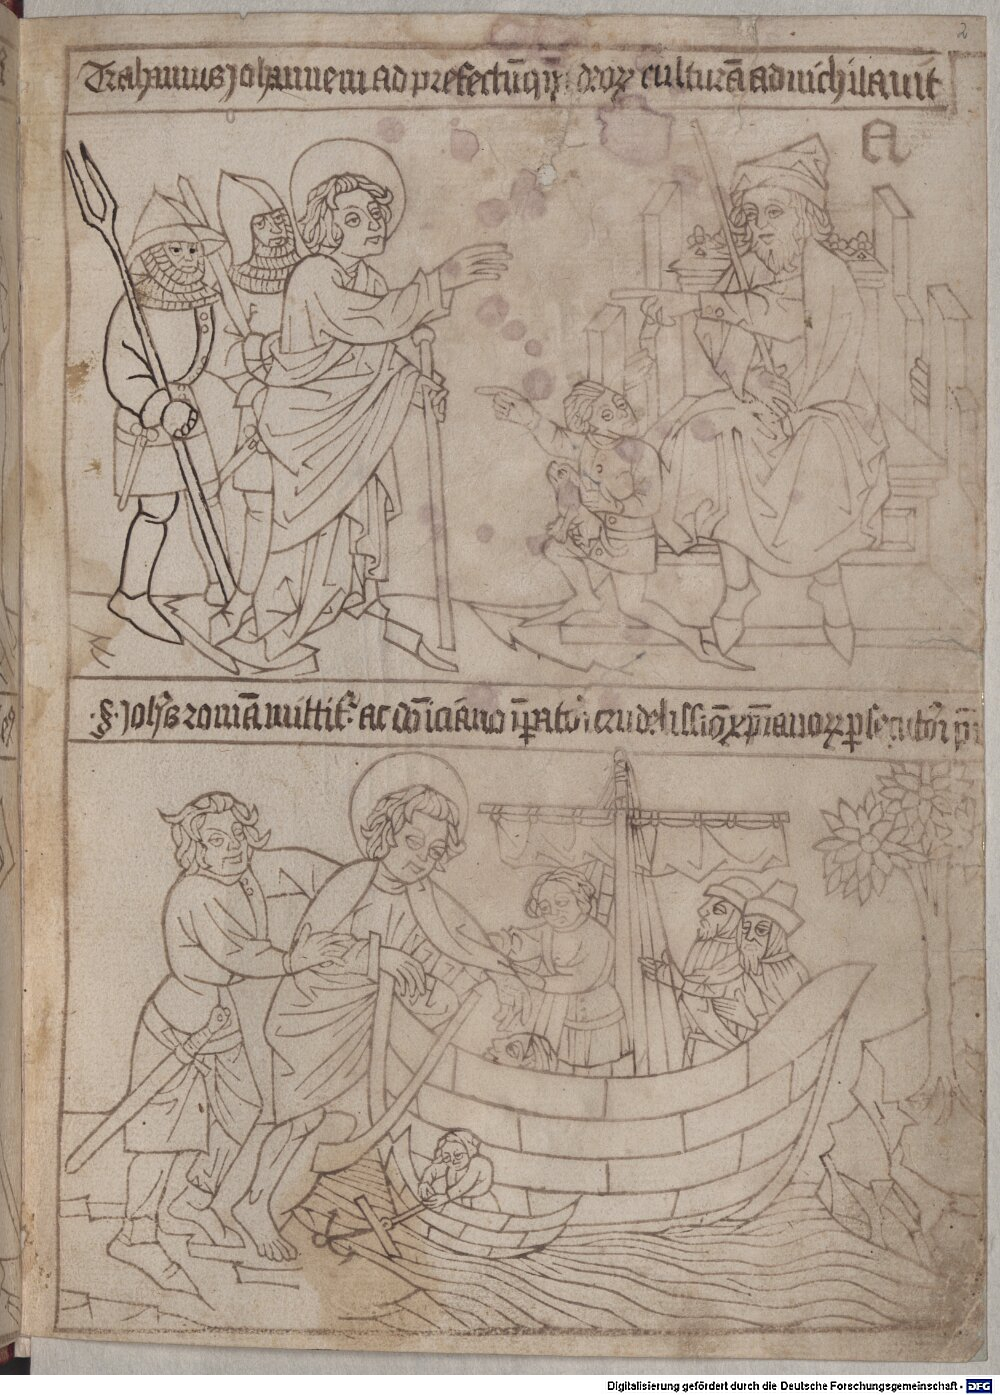 2
Trahamus Johannem ad prefectū qui ydolorꝝ culturā adnichilavit
A
·S· Johēs romā mittitr ac domiciano īpatori crudelissimo xp̄ianorꝝ psecutori
Digitalisierung gefördert durch die Deutsche Forschungsgemeinschaft - DFG